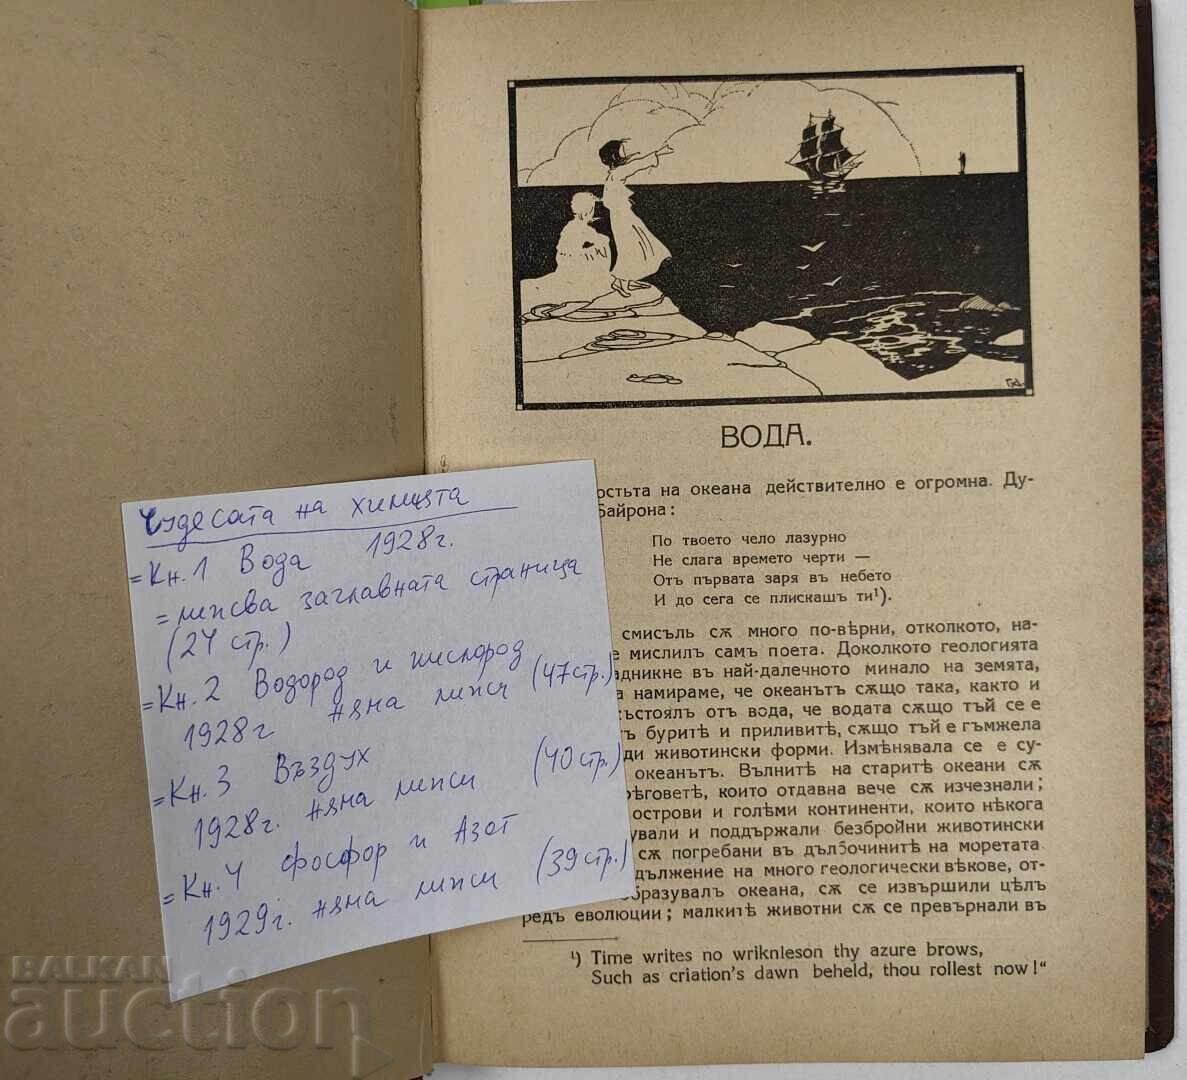 ВОДА.
остьта на океана действително е огромна. Ду-
Байрона:
По твоето чело лазурно
Не слага времето черти —
Отъ първата заря въ небето
И до сега се плискашъ ти¹).
смисълъ сѫ много по-вѣрни, отколкото, на-
е мислилъ самъ поета. Доколкото геологията
адникне въ най-далечното минало на земята,
а намираме, че океанътъ сѫщо така, както и
ъстоялъ отъ вода, че водата сѫщо тъй се е
ъ буритѣ и приливитѣ, сѫщо тъй е гъмжела
ди животински форми. Измѣнявала се е су-
океанътъ. Вълнитѣ на старитѣ океани сѫ
рѣговетѣ, които отдавна вече сѫ изчезнали;
острови и голѣми континенти, които нѣкога
ували и поддържали безбройни животински
сѫ погребани въ дълбочинитѣ на моретата.
дължение на много геологически вѣкове, от-
образувалъ океана, сѫ се извършили цѣлъ
редъ еволюции; малкитѣ животни сѫ се превърнали въ
¹) Time writes no wriknleson thy azure brows,
Such as criation's dawn beheld, thou rollest now!"
Чудесата на химията
= Кн. 1 Вода 1928г.
= липсва заглавната страница
(24 стр.)
= Кн. 2 Водород и кислород
1928г няма липси (47стр.)
= Кн. 3 Въздух
1928г. няма липси (40стр.)
= Кн. 4 Фосфор и Азот
1929г. няма липси (39стр.)
BALKAN
auction